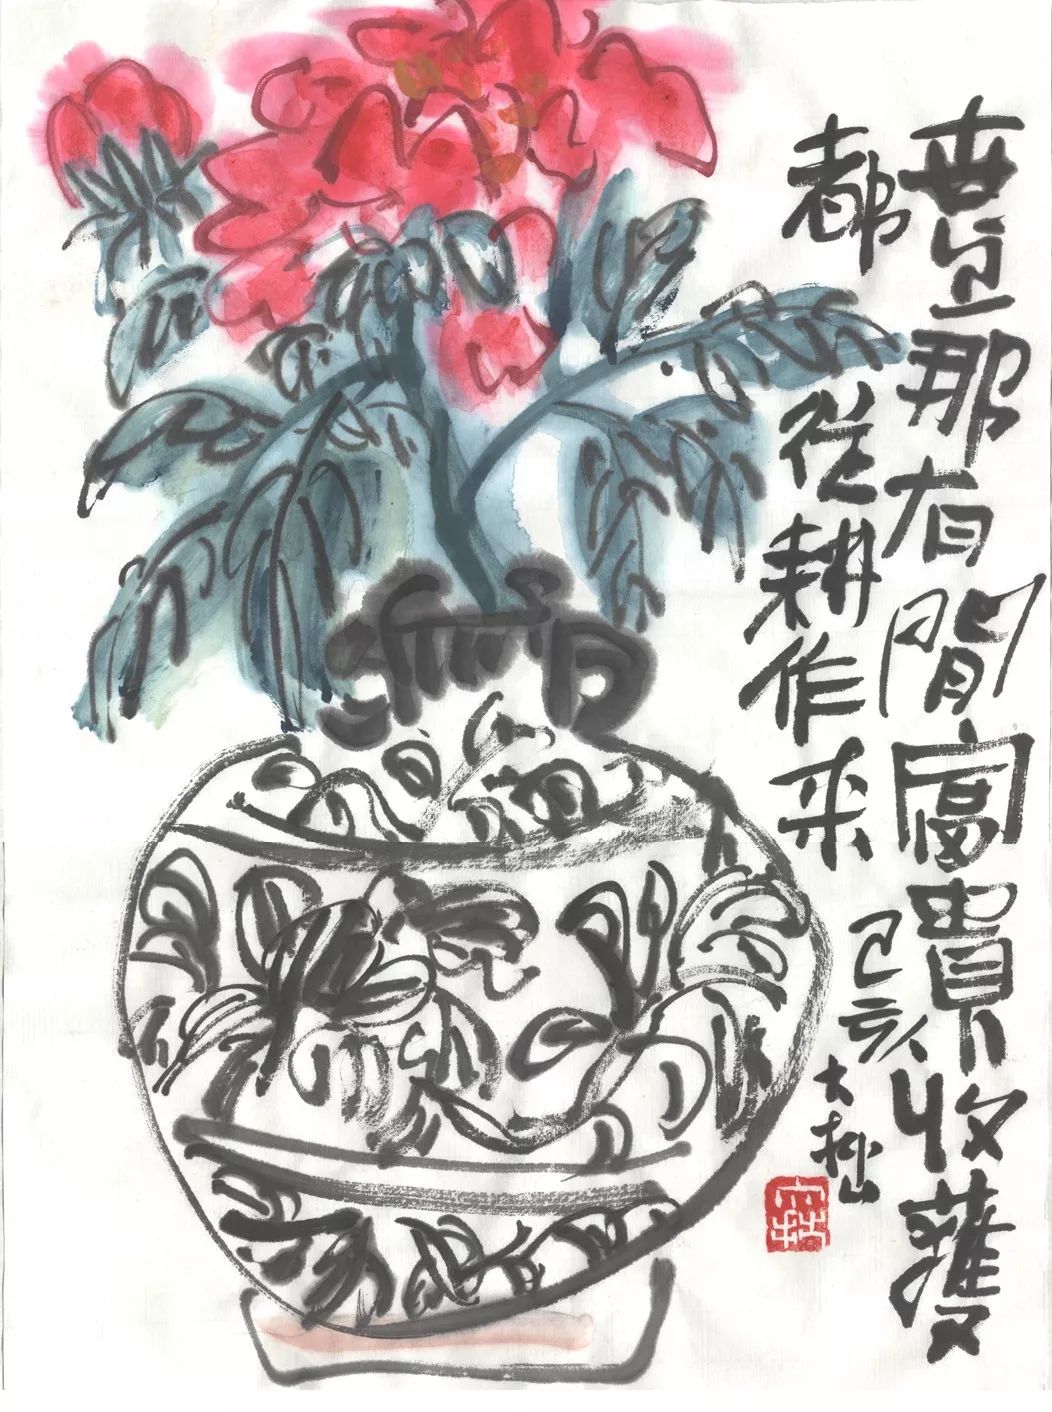 世上那有閒富貴收獲
都從耕作来
己亥
大拙
大拙